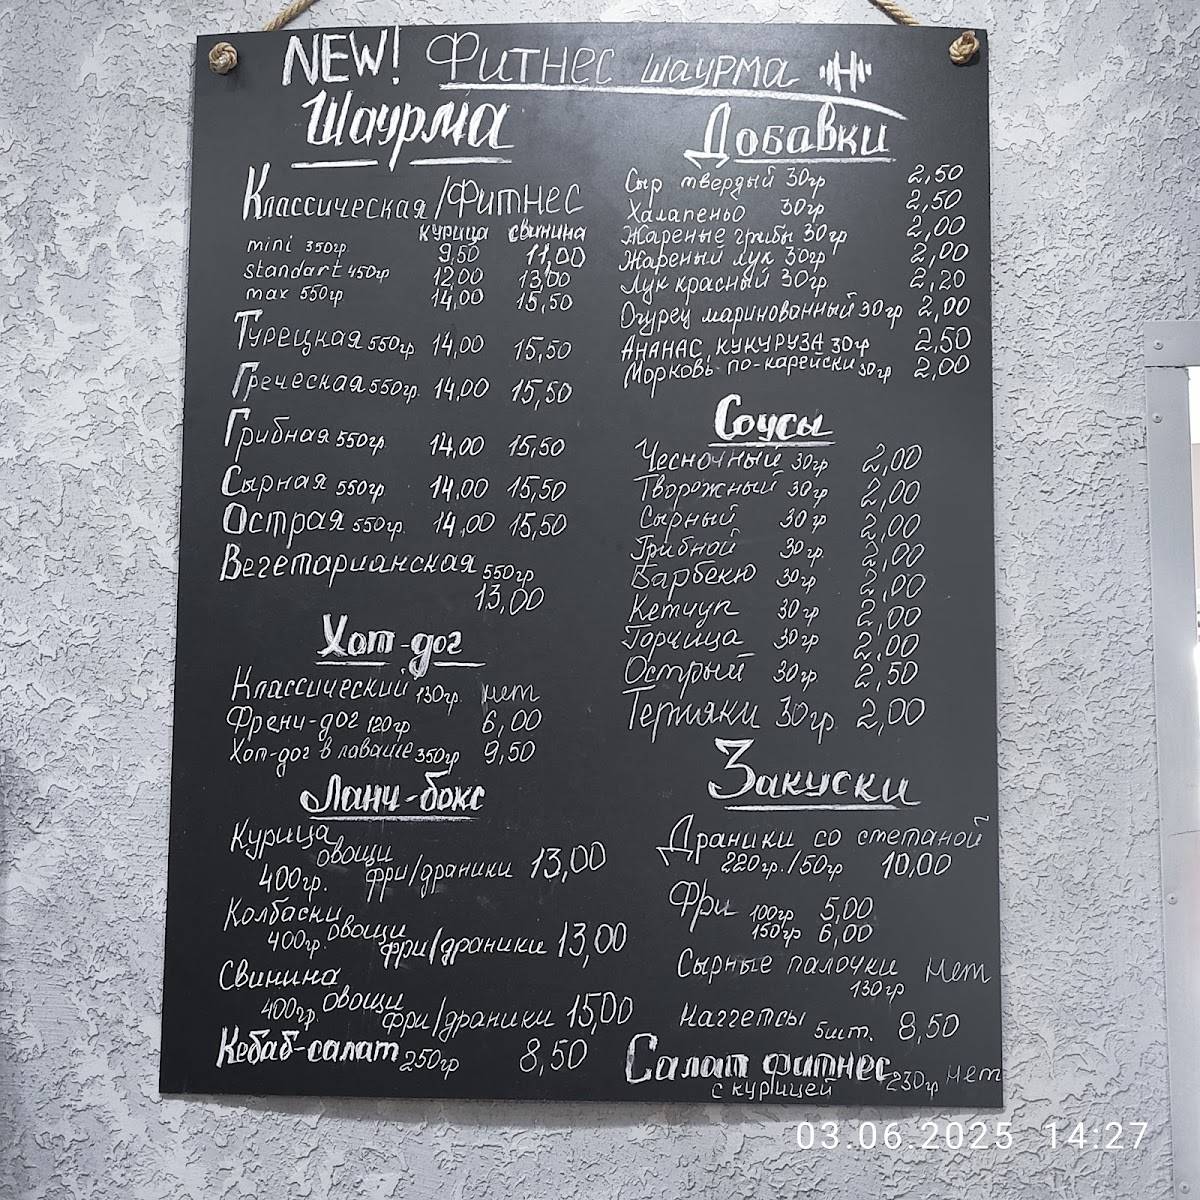 NEW! Фитнес шаурма
Шаурма
Классическая/Фитнес
курица свинина
mini 350гр 9,50 11,00
standart 450гр 12,00 13,00
max 550гр 14,00 15,50
Турецкая 550гр 14,00 15,50
Греческая 550гр. 14,00 15,50
Грибная 550гр 14,00 15,50
Сырная 550гр 14,00 15,50
Острая 550гр. 14,00 15,50
Вегетарианская 550гр
13,00
Хот-дог
Классический 130гр. нет
Френч-дог 120гр 6,00
Хот-дог в лаваше 350гр 9,50
Ланч-бокс
Курица
овощи
400гр. фри/драники 13,00
Колбаски
400гр. овощи
фри/драники 13,00
Свинина
400гр. овощи
фри/драники 15,00
Кебаб-салат 250гр 8,50
Добавки
Сыр твердый 30гр 2,50
Халапеньо 30гр 2,50
Жареные грибы 30гр 2,00
Жареный лук 30гр 2,00
Лук красный 30гр. 2,20
Огурец маринованный 30гр 2,00
Ананас, кукуруза 30гр 2,50
Морковь по-карейски 30гр 2,00
Соусы
Чесночный 30гр 2,00
Творожный 30гр 2,00
Сырный 30гр 2,00
Грибной 30гр. 2,00
Барбекю 30гр 2,00
Кетчуп 30гр 2,00
Горчица 30гр 2,00
Острый 30гр 2,50
Терияки 30гр. 2,00
Закуски
Драники со сметаной
220гр./50гр 10,00
Фри 100гр 5,00
150гр 6,00
Сырные палочки нет
130гр
Наггетсы 5шт. 8,50
Салат фитнес 230гр нет
с курицей
03.06.2025 14:27